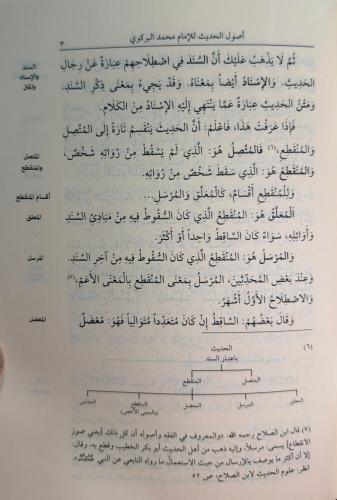 أصول الحديث للإمام محمد البركوي
٣
ثُمَّ لَا يَذْهَبُ عَلَيْكَ أَنَّ السَّنَدَ فِي اصْطِلَاحِهِمْ عِبَارَةٌ عَنْ رِجَالِ
السند
والإسناد
والمتن
الحَدِيثِ. وَالإِسْنَادُ أَيْضاً بِمَعْنَاهُ. وَقَدْ يَجِيءُ بِمَعْنَى ذِكْرِ السَّنَدِ.
وَمَتْنُ الحَدِيثِ عِبَارَةٌ عَمَّا يَنْتَهِي إِلَيْهِ الإِسْنَادُ مِنَ الكَلَامِ.
فَإِذَا عَرَفْتَ هَذَا، فَاعْلَمْ: أَنَّ الحَدِيثَ يَنْقَسِمُ تَارَةً إِلَى المُتَّصِلِ
المتصل
والمنقطع
وَالمُنْقَطِعِ،(٦) فَالمُتَّصِلُ هُوَ: الَّذِي لَمْ يَسْقُطْ مِنْ رُوَاتِهِ شَخْصٌ،
وَالمُنْقَطِعُ هُوَ: الَّذِي سَقَطَ شَخْصٌ مِنْ رُوَاتِهِ.
وَلِلْمُنْقَطِعِ أَقْسَامٌ، كَالمُعَلَّقِ وَالمُرْسَلِ...
أقسام المنقطع
المُعَلَّقُ هُوَ: المُنْقَطِعُ الَّذِي كَانَ السُّقُوطُ فِيهِ مِنْ مَبَادِئِ السَّنَدِ
المعلق
وَأَوَائِلِهِ، سَوَاءٌ كَانَ السَّاقِطُ وَاحِداً أَوْ أَكْثَرَ.
وَالمُرْسَلُ هُوَ: المُنْقَطِعُ الَّذِي كَانَ السُّقُوطُ فِيهِ مِنْ آخِرِ السَّنَدِ.
المرسل
وَعِنْدَ بَعْضِ المُحَدِّثِينَ، المُرْسَلُ بِمَعْنَى المُنْقَطِعِ بِالْمَعْنَى الأَعَمِّ،(٧)
وَالاصْطِلَاحُ الأَوَّلُ أَشْهَرُ.
وَقَالَ بَعْضُهُمْ: السَّاقِطُ إِنْ كَانَ مُتَعَدِّداً مُتَوَالِياً فَهُوَ: مُعْضَلٌ
المعضل
(٦)
الحديث
باعتبار السند
المتصل
المنقطع
المعلق
المرسل
المعضل
المنقطع
(بالمعنى الأخص)
المدلس
(٧) قال ابن الصلاح رحمه الله: «والمعروف في الفقه وأصوله أن كل ذلك [يعني صور
الانقطاع] يسمى مرسلاً، وإليه ذهب من أهل الحديث أبو بكر الخطيب وقطع به، وقال:
إلا أن أكثر ما يوصف بالإرسال من حيث الاستعمال ما رواه التابعي عن النبي ﷺ».
انظر: علوم الحديث لابن الصلاح، ص ٥٢.